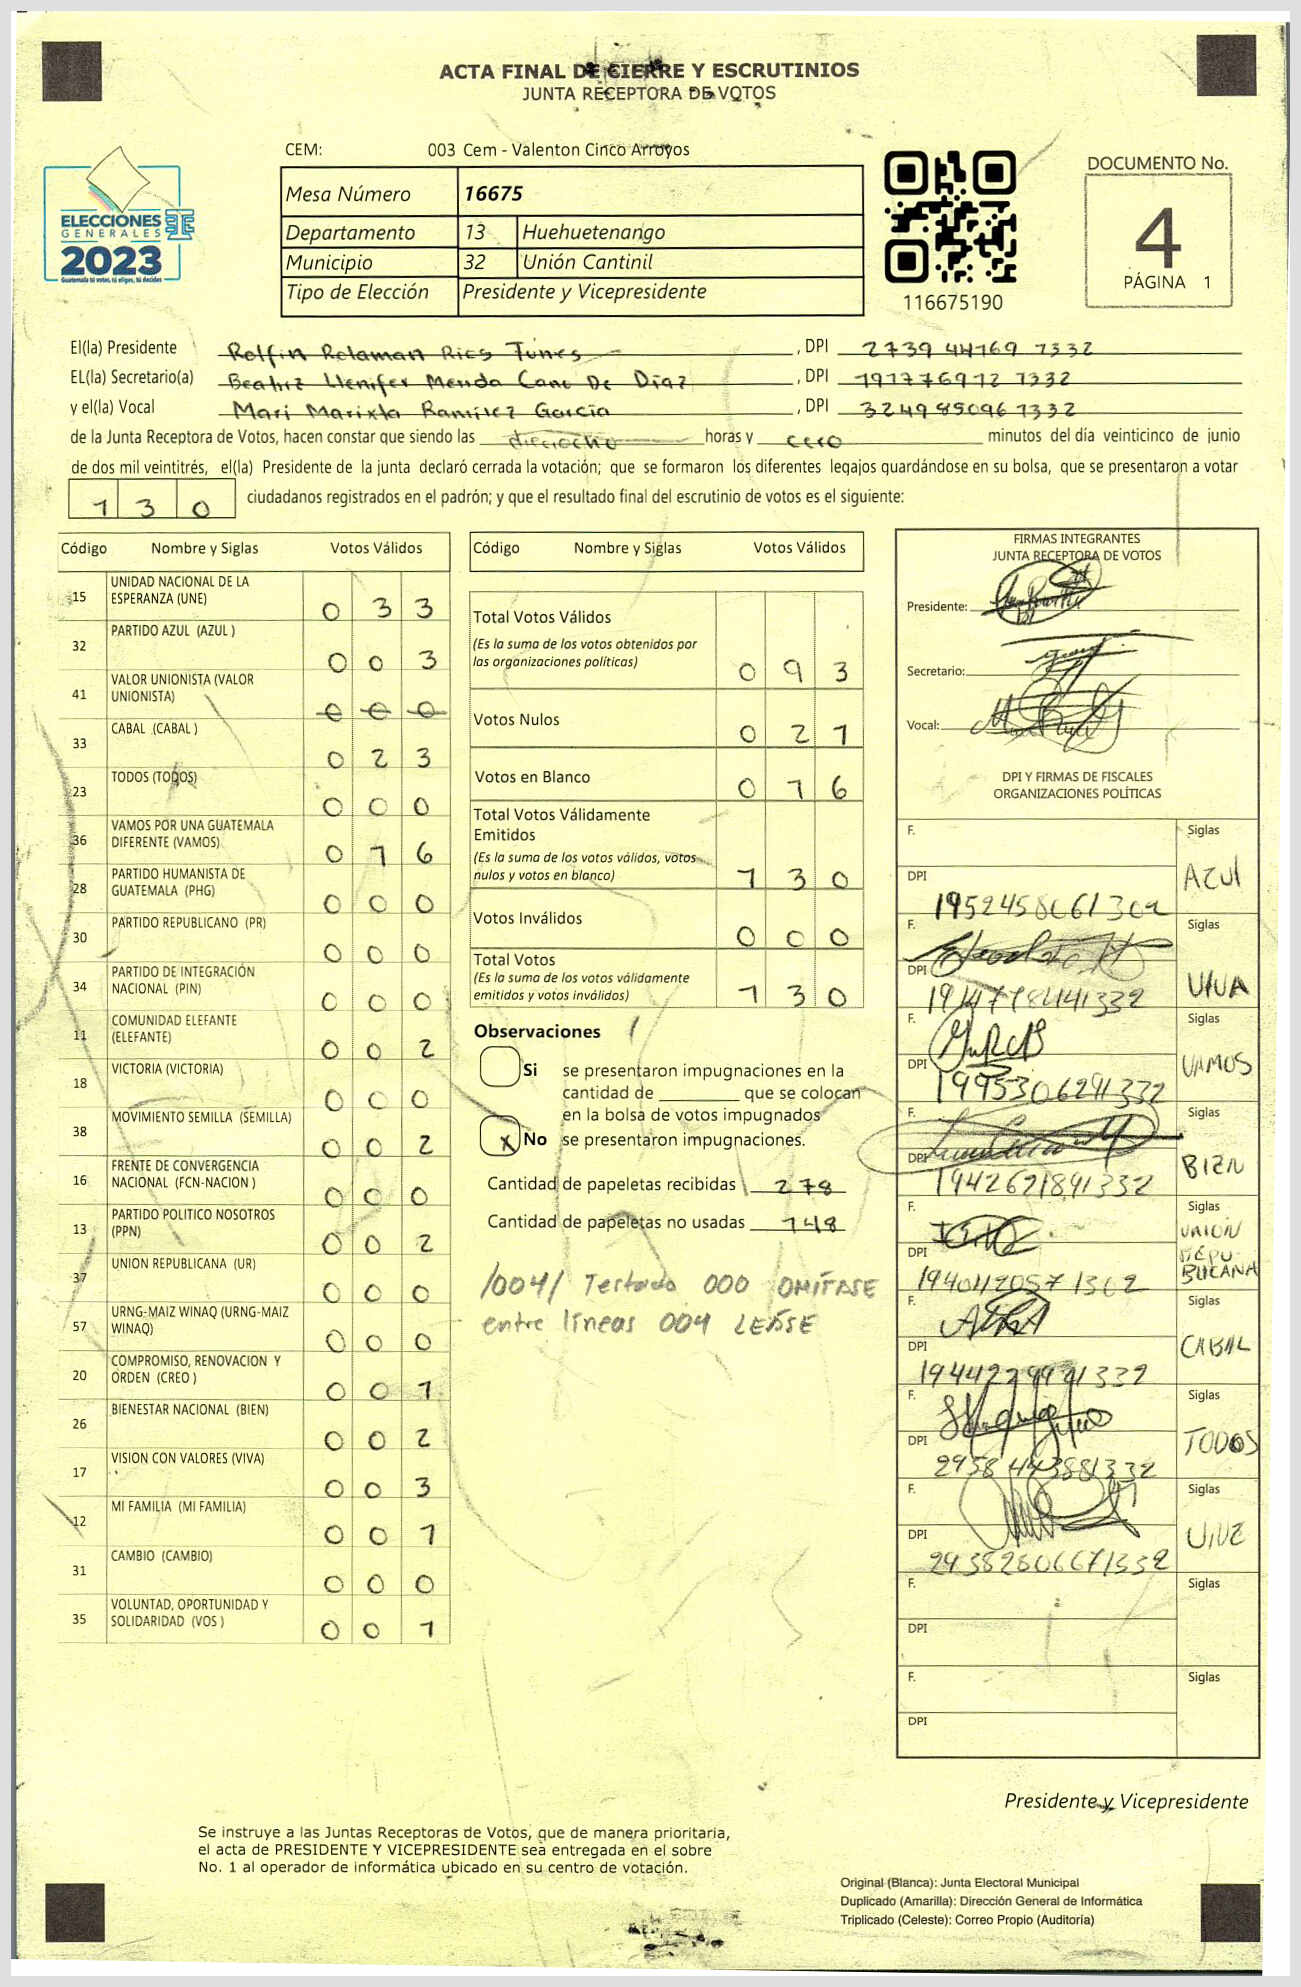 ACTA FINAL DE CIERRE Y ESCRUTINIOS
JUNTA RECEPTORA DE VOTOS
CEM: 003 Cem - Valenton Cinco Arroyos
Mesa Número 16675
Departamento 13 Huehuetenango
Municipio 32 Unión Cantinil
Tipo de Elección Presidente y Vicepresidente
ELECCIONES
GENERALES
2023
Guatemala tú votas, tú eliges, tú decides
116675190
DOCUMENTO No.
4
PÁGINA 1
El(la) Presidente Rolfin Rolaman Rios Tunes , DPI 2739 44769 1332
EL(la) Secretario(a) Beatriz Llenifer Merida Cano De Díaz , DPI 191776972 1332
y el(la) Vocal Mari Marixta Ramirez García , DPI 3249850961332
de la Junta Receptora de Votos, hacen constar que siendo las dieciocho horas y cero minutos del día veinticinco de junio
de dos mil veintitrés, el(la) Presidente de la junta declaró cerrada la votación; que se formaron los diferentes legajos quardándose en su bolsa, que se presentaron a votar
1 3 0 ciudadanos registrados en el padrón; y que el resultado final del escrutinio de votos es el siguiente:
Código Nombre y Siglas Votos Válidos
15 UNIDAD NACIONAL DE LA ESPERANZA (UNE) 0 3 3
32 PARTIDO AZUL (AZUL ) 0 0 3
41 VALOR UNIONISTA (VALOR UNIONISTA) 0 0 0
33 CABAL (CABAL ) 0 2 3
23 TODOS (TODOS) 0 0 0
36 VAMOS POR UNA GUATEMALA DIFERENTE (VAMOS) 0 1 6
28 PARTIDO HUMANISTA DE GUATEMALA (PHG) 0 0 0
30 PARTIDO REPUBLICANO (PR) 0 0 0
34 PARTIDO DE INTEGRACIÓN NACIONAL (PIN) 0 0 0
11 COMUNIDAD ELEFANTE (ELEFANTE) 0 0 2
18 VICTORIA (VICTORIA) 0 0 0
38 MOVIMIENTO SEMILLA (SEMILLA) 0 0 2
16 FRENTE DE CONVERGENCIA NACIONAL (FCN-NACION ) 0 0 0
13 PARTIDO POLITICO NOSOTROS (PPN) 0 0 2
37 UNION REPUBLICANA (UR) 0 0 0
57 URNG-MAIZ WINAQ (URNG-MAIZ WINAQ) 0 0 0
20 COMPROMISO, RENOVACION Y ORDEN (CREO ) 0 0 1
26 BIENESTAR NACIONAL (BIEN) 0 0 2
17 VISION CON VALORES (VIVA) 0 0 3
12 MI FAMILIA (MI FAMILIA) 0 0 1
31 CAMBIO (CAMBIO) 0 0 0
35 VOLUNTAD, OPORTUNIDAD Y SOLIDARIDAD (VOS ) 0 0 1
Código Nombre y Siglas Votos Válidos
Total Votos Válidos
(Es la suma de los votos obtenidos por
las organizaciones políticas) 0 9 3
Votos Nulos 0 2 1
Votos en Blanco 0 1 6
Total Votos Válidamente
Emitidos
(Es la suma de los votos válidos, votos
nulos y votos en blanco) 1 3 0
Votos Inválidos 0 0 0
Total Votos
(Es la suma de los votos válidamente
emitidos y votos inválidos) 1 3 0
Observaciones
Si se presentaron impugnaciones en la
cantidad de ________ que se colocan
en la bolsa de votos impugnados
x No se presentaron impugnaciones.
Cantidad de papeletas recibidas 278
Cantidad de papeletas no usadas 148
/004/ Testado 000 OMÍTASE
entre líneas 004 LEÁSE
FIRMAS INTEGRANTES
JUNTA RECEPTORA DE VOTOS
Presidente:
Secretario:
Vocal:
DPI Y FIRMAS DE FISCALES
ORGANIZACIONES POLÍTICAS
F. Siglas
AZUl
DPI 1952458061302
F. Siglas
VIVA
DPI 1914778441332
F. Siglas
VAMOS
DPI 1995306291332
F. Siglas
BIEN
DPI 1942621891332
F. Siglas
UNION REPUBLICANA
DPI 1940112057 1302
F. Siglas
CABAL
DPI 1944229921332
F. Siglas
TODOS
DPI 2958443881332
F. Siglas
VIVE
DPI 29382806671332
F. Siglas
DPI
F. Siglas
DPI
Presidente y Vicepresidente
Se instruye a las Juntas Receptoras de Votos, que de manera prioritaria,
el acta de PRESIDENTE Y VICEPRESIDENTE sea entregada en el sobre
No. 1 al operador de informática ubicado en su centro de votación.
Original (Blanca): Junta Electoral Municipal
Duplicado (Amarilla): Dirección General de Informática
Triplicado (Celeste): Correo Propio (Auditoría)